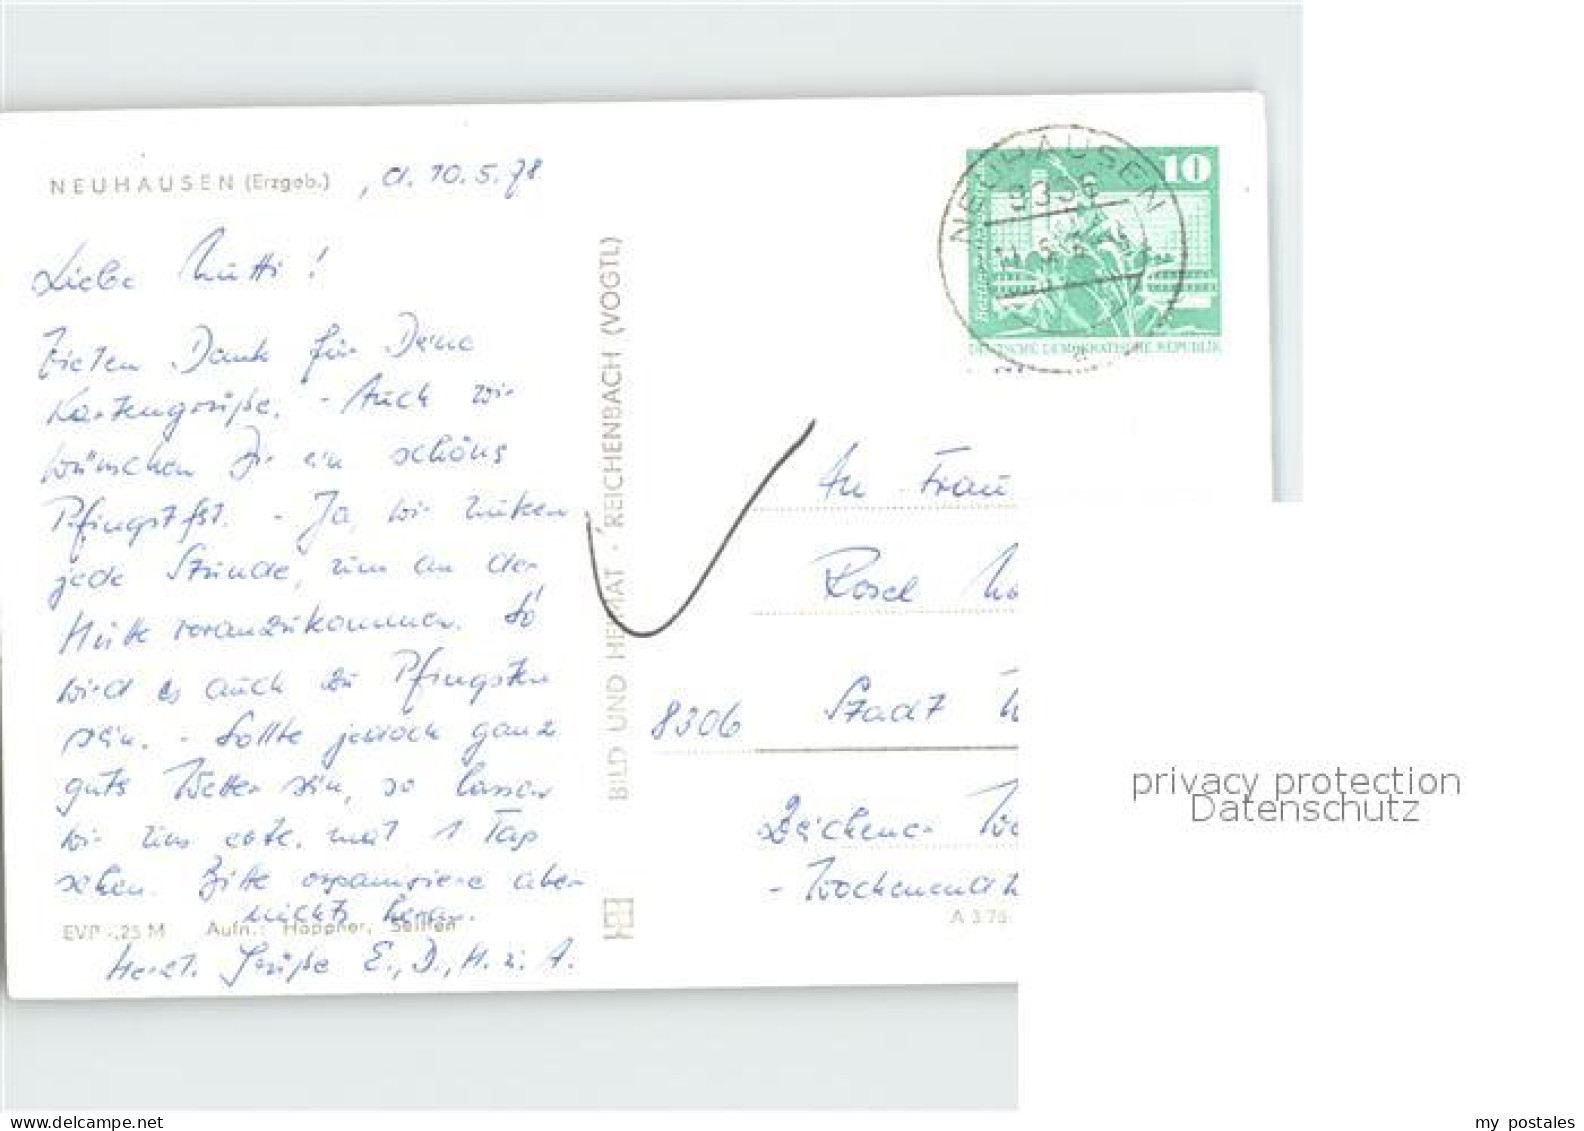 NEUHAUSEN (Erzgeb.) , d. 10.5.78
Liebe Mutti!
Vielen Dank für Deine
Kartengrüße. - Auch wir
wünschen Dir ein schönes
Pfingstfest. - Ja, wir nutzen
jede Stunde, um an der
Hütte voranzukommen. So
wird es auch zu Pfingsten
sein. - Sollte jedoch ganz
gutes Wetter sein, so lassen
wir uns evtl. mal 1 Tag
sehen. Bitte organisiere aber
nichts
EVP -,25 M Aufn.: Höppner, Seiffen
Herzl. Grüße E., D., H. u. A.
BILD UND HEIMAT · REICHENBACH (VOGTL)
NEUHAUSEN
9336
10
DEUTSCHE DEMOKRATISCHE REPUBLIK
An Frau
Rosel
8306 Stadt
- Wochenend
A 3 76
privacy protection
Datenschutz
delcampe.net
my postales